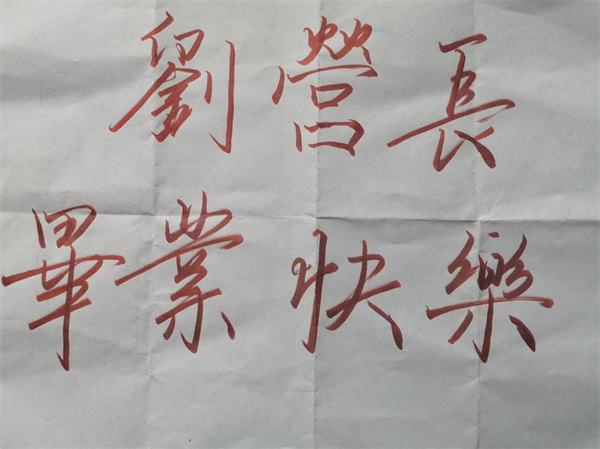 劉營長
畢業快樂